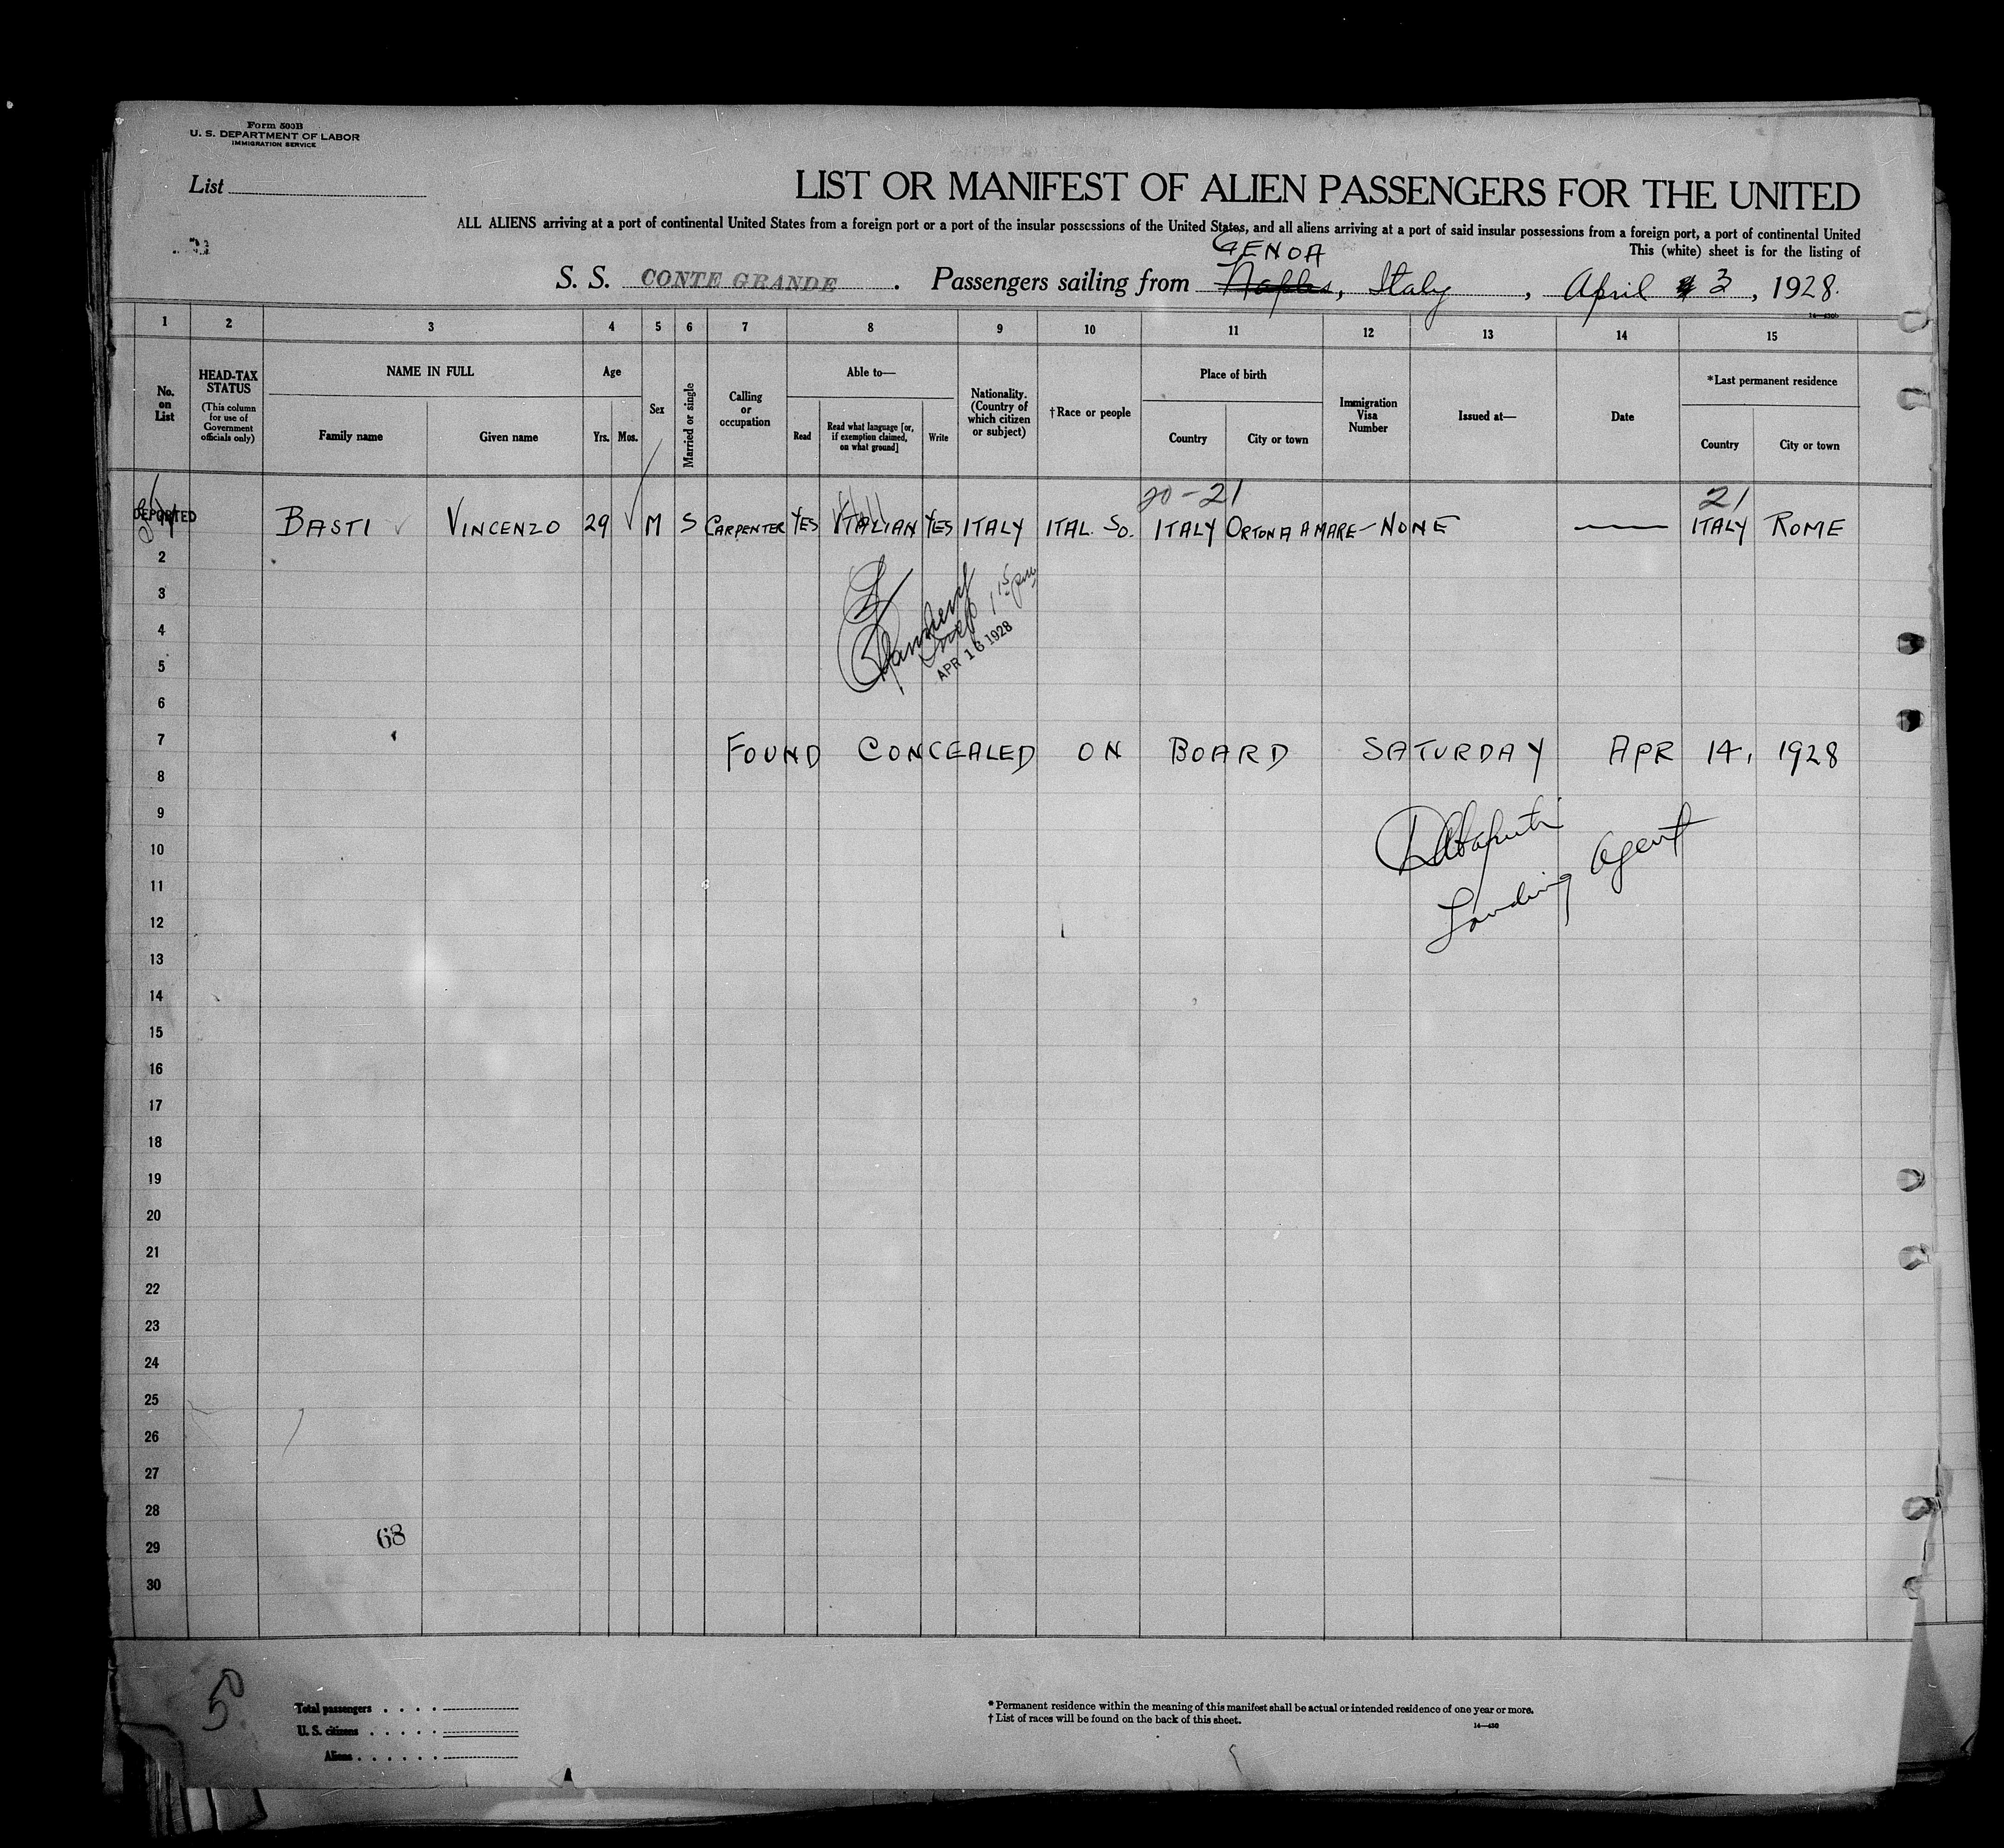 Form 500B
U. S. DEPARTMENT OF LABOR
IMMIGRATION SERVICE
List
LIST OR MANIFEST OF ALIEN PASSENGERS FOR THE UNITED
ALL ALIENS arriving at a port of continental United States from a foreign port or a port of the insular possessions of the United States, and all aliens arriving at a port of said insular possessions from a foreign port, a port of continental United
This (white) sheet is for the listing of
GENOA
S. S. CONTE GRANDE. Passengers sailing from Naples, Italy, April 3, 1928.
1 2 3 4 5 6 7 8 9 10 11 12 13 14 15
No. on List
HEAD-TAX STATUS
(This column for use of Government officials only)
NAME IN FULL
Family name Given name
Age
Yrs. Mos.
Sex
Married or single
Calling or occupation
Able to—
Read
Read what language [or, if exemption claimed, on what ground]
Write
Nationality. (Country of which citizen or subject)
†Race or people
Place of birth
Country City or town
Immigration Visa Number
Issued at—
Date
*Last permanent residence
Country City or town
20-21 21
DEPORTED BASTI VINCENZO 29 M S CARPENTER YES ITALIAN YES ITALY ITAL. SO. ITALY ORTONA A MARE - NONE — ITALY ROME
2
3
4
APR 16 1928
5
6
7 FOUND CONCEALED ON BOARD SATURDAY APR 14, 1928
8
9
10
Landing Agent
11
12
13
14
15
16
17
18
19
20
21
22
23
24
25
26
27
28
68
29
30
50
Total passengers . . . .
U. S. citizens . . . . .
Aliens . . . . . .
* Permanent residence within the meaning of this manifest shall be actual or intended residence of one year or more.
† List of races will be found on the back of this sheet.